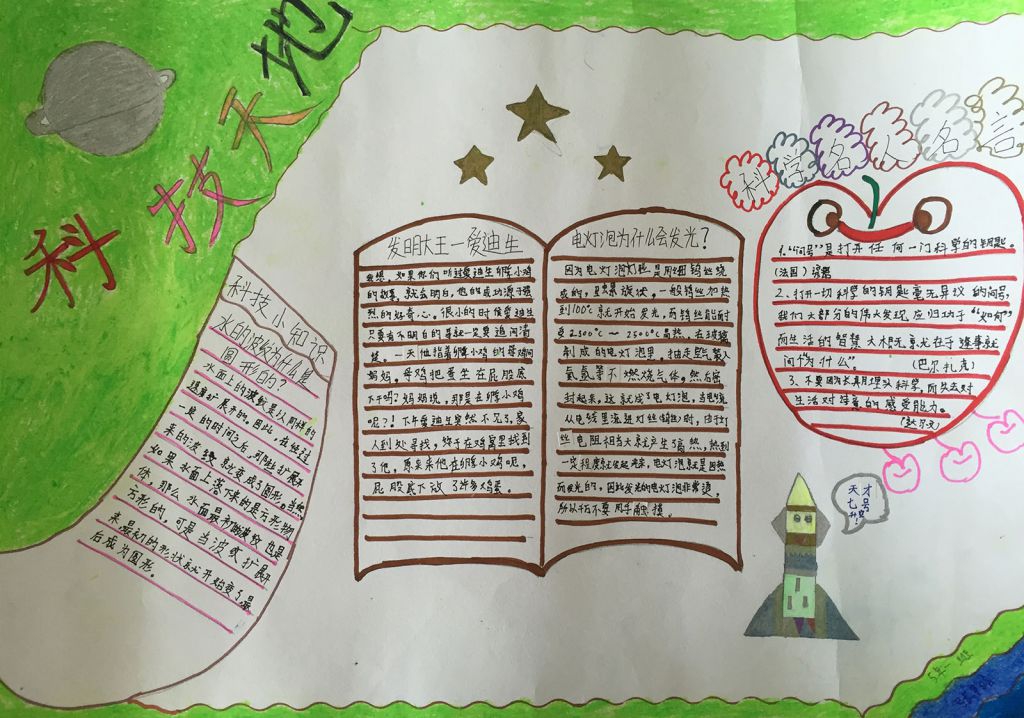 科技天地
科技小知识
水的波纹为什么是
圆形的？
水面上的波纹是以同样的
速度扩展开的。因此，在经过
一定的时间之后，同时扩展开
来的波纹就变成了圆形。当然
如果水面上落下来的是方形物
体，那么水面最初的波纹也是
方形的，可是当波纹扩展开
来，最初的形状就开始变了，最
后成为圆形。
发明大王—爱迪生
我想，如果你们听过爱迪生孵小鸡
的故事，就会明白，他的成功源于强
烈的好奇心。很小的时候爱迪生
只要有不明白的事就一定要追问清
楚。一天他指着孵小鸡的母鸡问
妈妈，母鸡把蛋坐在屁股底
下干吗？妈妈说，那是在孵小鸡
呢？！下午爱迪生突然不见了，家
人到处寻找，终于在鸡窝里找到
了他，原来他在孵小鸡呢，
屁股底下放了许多鸡蛋。
电灯泡为什么会发光？
因为电灯泡灯丝是用细钨丝烧
成的，虽
一般钨丝加热
到100℃就开始发光，而钨丝能耐
受2500℃～2500℃高热。在玻璃
制成的电灯泡里，抽走空气装入
氮氩等不燃烧气体，然后密
封起来，这就成了电灯泡，当电流
从电线里流进灯丝
时，由于灯
丝电阻相当大就产生了高热，热到
一定程度就发起光来，电灯泡就是因热
而发光的，因此发光的电灯泡非常烫，
所以千万不要用手触摸。
科学名人名言
1、“问号”是打开任何一门科学的钥匙。
（法国）
2、打开一切科学的钥匙毫无异议的问号，
我们大部分的伟大发现应归功于“如何”
而生活的智慧大概无
就在于逢事就
问“为什么”。
（巴尔扎克）
3、不要因为长期埋头科学，而失去对
生活对
的感受能力。
（达尔文）
天七
才号
升